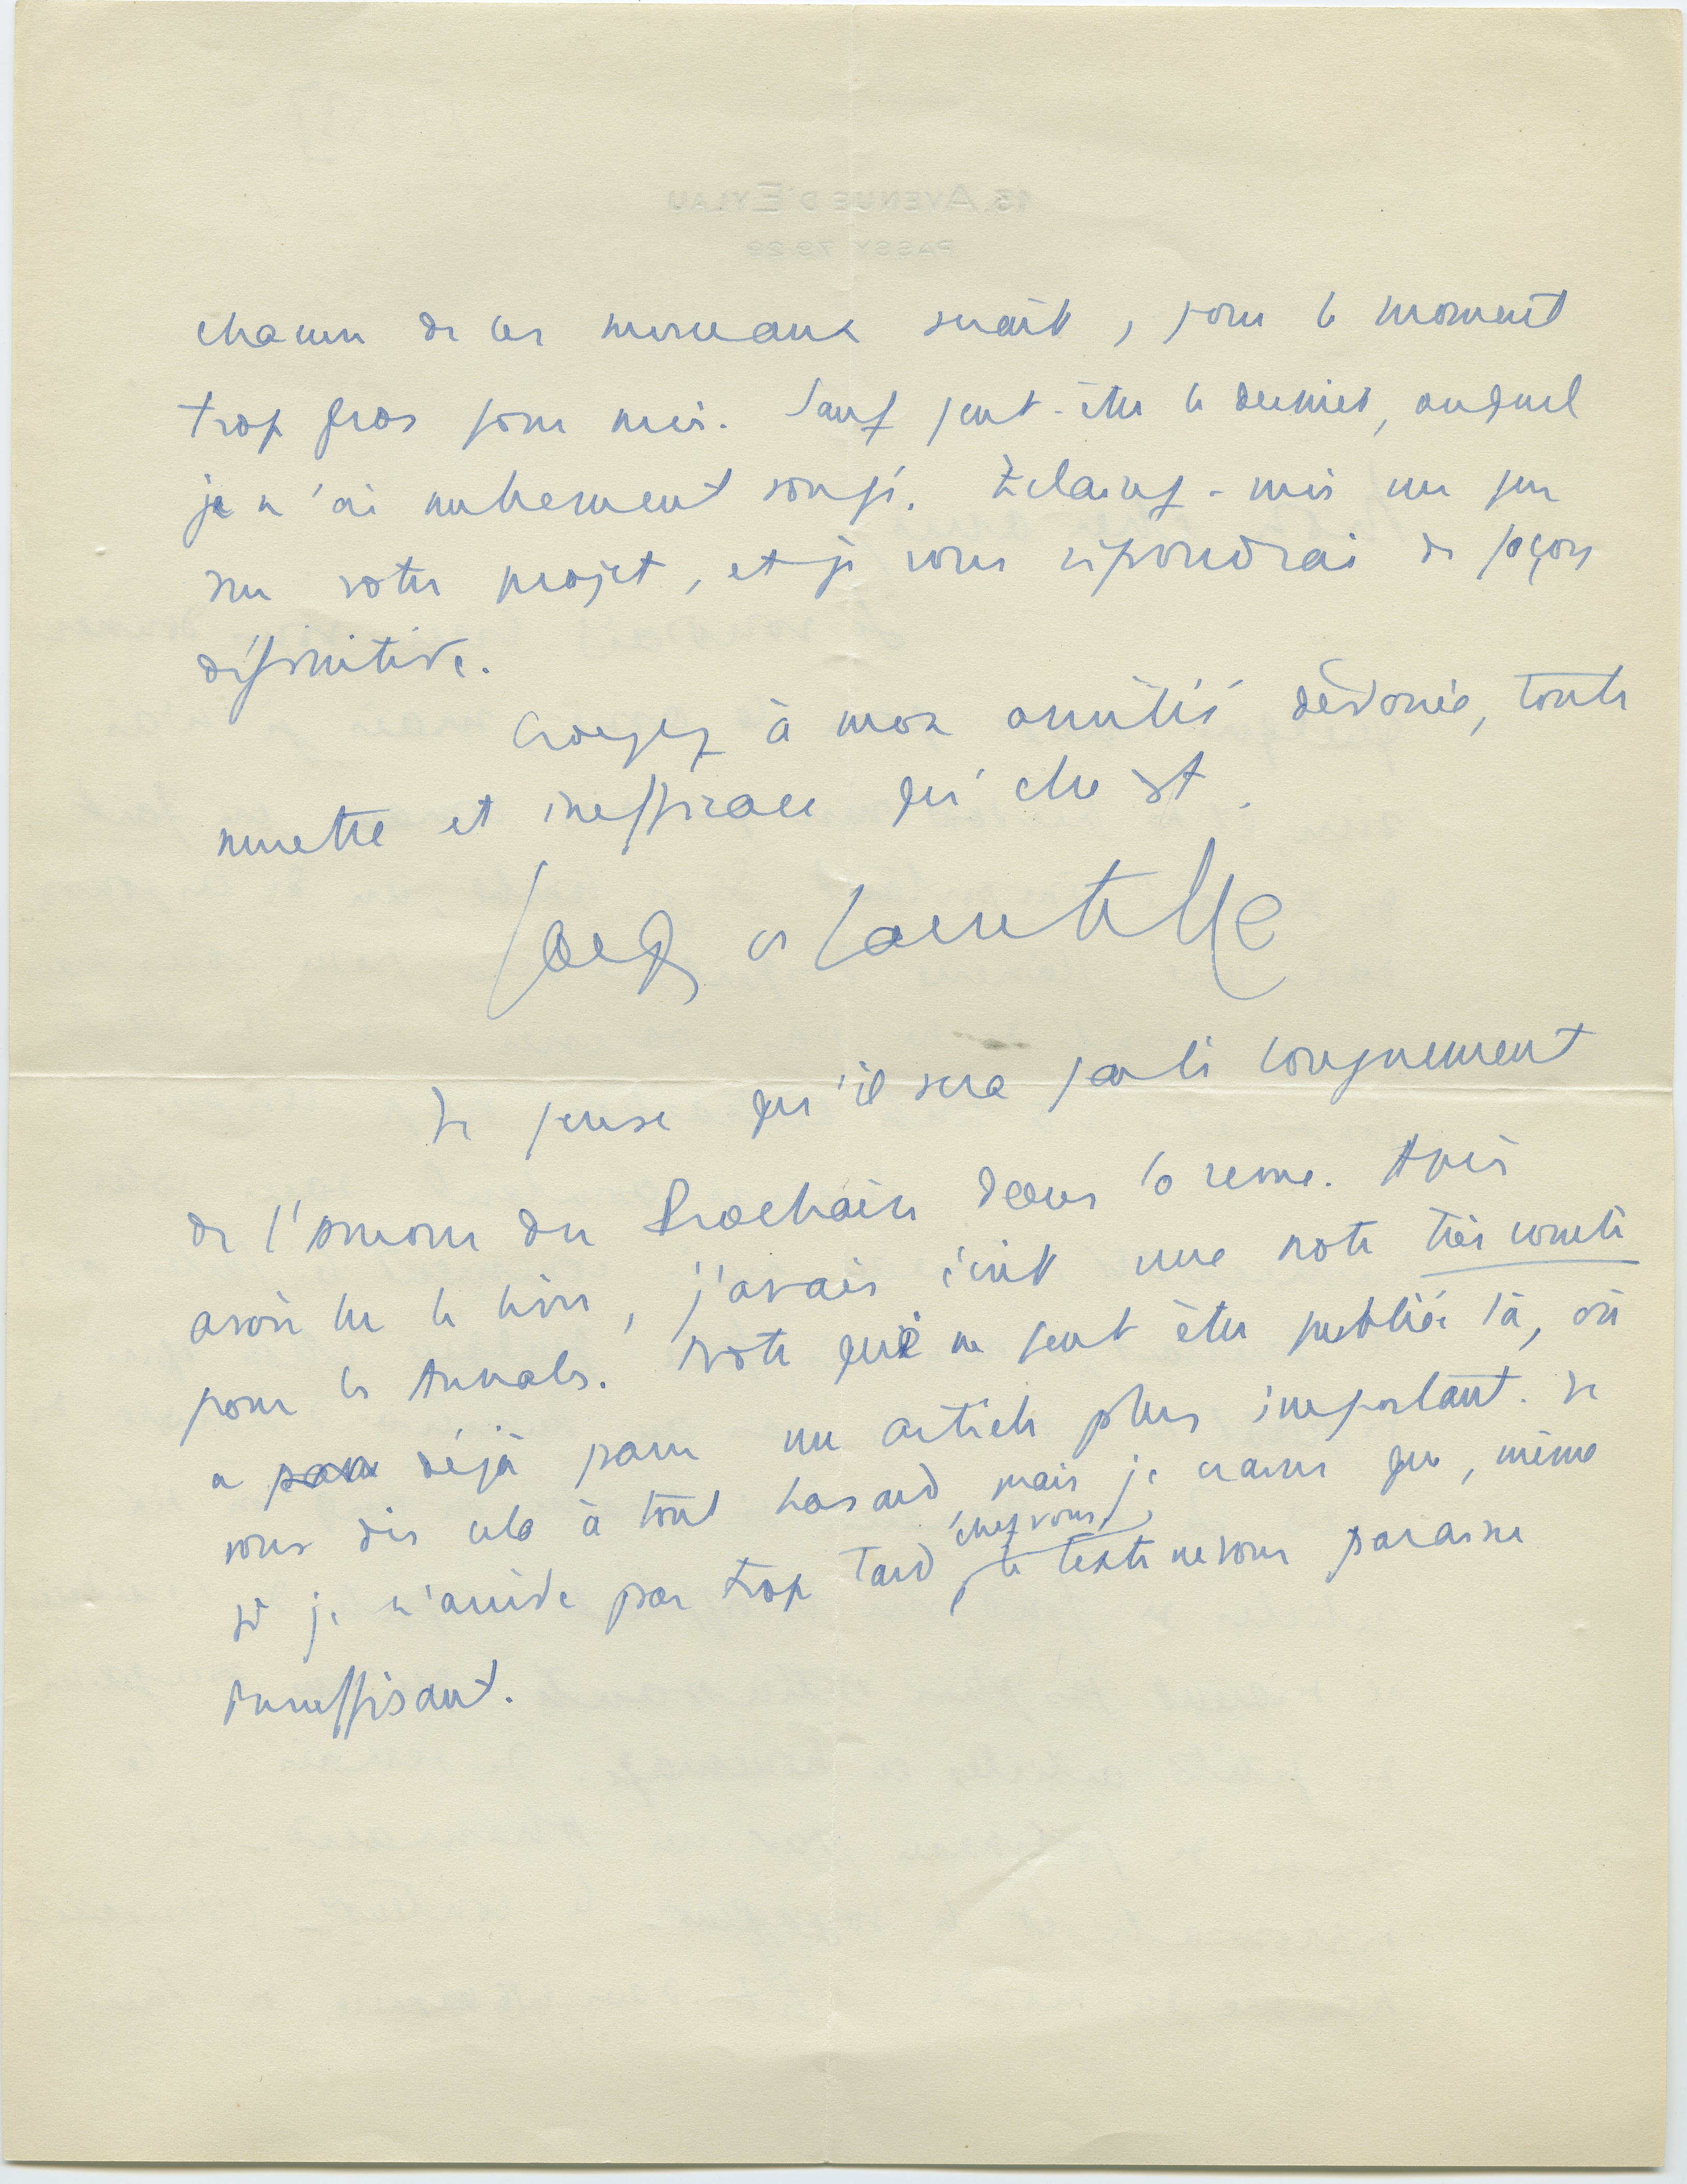 chacun de ces morceaux serait, pour le moment
trop gros pour moi. Sauf peut-être le dernier, auquel
je n'ai nullement songé. Éclairez-moi un peu
sur votre projet, et je vous répondrai de façon
définitive.
Croyez à mon amitié dévouée, toute
muette et inefficace qu'elle est.
Jacques de Lacretelle
Je pense qu'il sera parlé longuement
de l'Amour du Prochain dans la revue. Après
avoir lu le livre, j'avais écrit une note très courte
pour les Annales. Note qui ne peut être publiée là, où
a déjà paru un article plus important. Je
vous dis cela à tout hasard, mais je crains que, même
si je n'arrive pas trop tard chez vous, le texte ne vous paraisse
insuffisant.